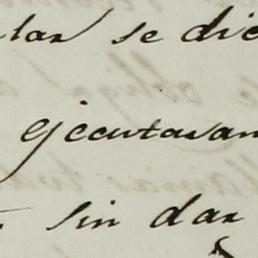 lar se dic
ejecutaran
sin dar